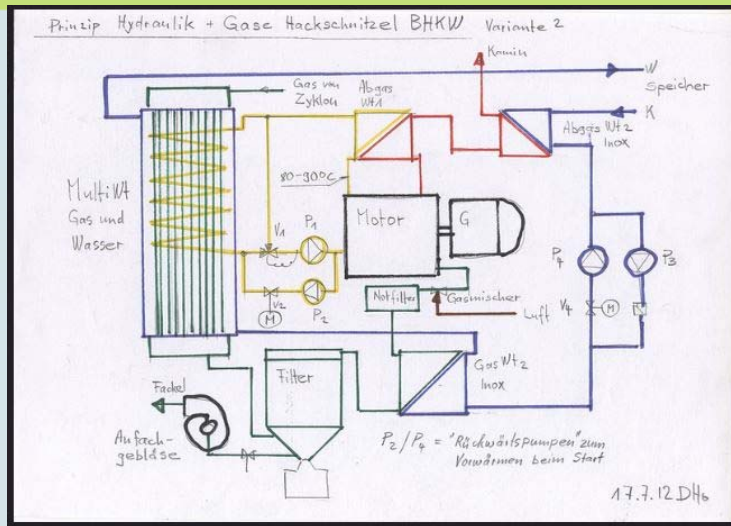 Prinzip Hydraulik + Gase Hackschnitzel BHKW Variante 2
Kamin
W
Speicher
K
Gas von
Zyklon
Abgas
Wt1
Abgas Wt2
Inox
80-90°C
MultiWt
Gas und
Wasser
V1
P1
Motor
G
P4
P3
V2
M
P2
Notfilter
Gasmischer
Luft
V4
M
Fackel
Filter
Gas Wt2
Inox
Anfach-
gebläse
P2/P4 = "Rückwärtspumpen" zum
Vorwärmen beim Start
17.7.12 DHb